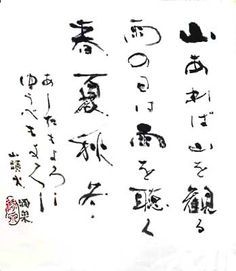 山あれば山を観る
雨の日は雨を聴く
春、夏、秋、冬、
あしたもよろし
ゆうべもよろし
山頭火